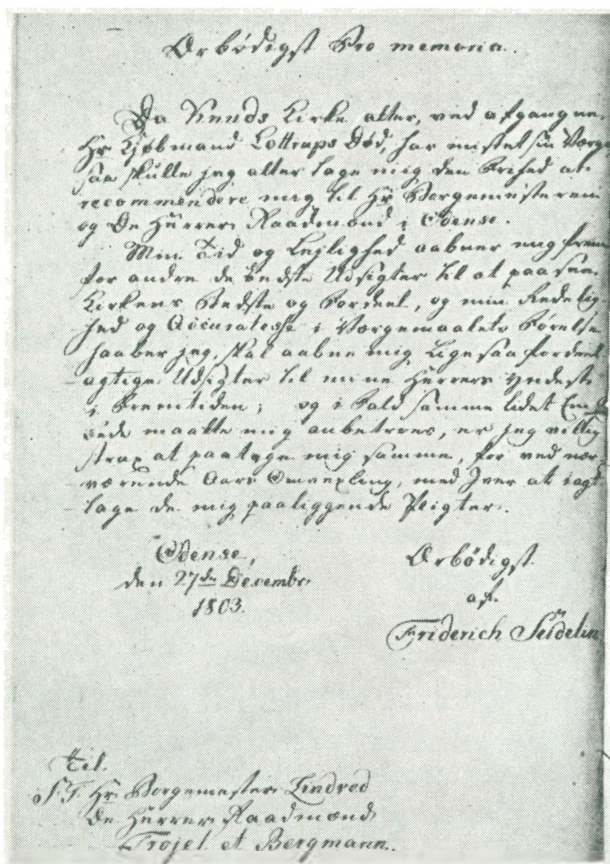 Ærbødigst Pro memoria.
Da Knuds Kirke atter, ved afgangne
Hr Kjøbmand Lottrups Død, har mistet sin Værge
saa skulle jeg atter tage mig den Frihed at
recommendere mig til Hr Borgemesteren
og De Herrer Raadmænd i Odense.
Min Tid og Lejlighed aabner mig frem
for andre de bedste Udsigter til at paasee
Kirkens Bedste og Fordeel, og min Redelig
hed og Accuratesse i Værgemaalets Førelse
haaber jeg, skal aabne mig ligesaa fordeel
agtige Udsigter til mine Herrers Yndest
i Fremtiden; og i Fald samme lidet Em
bede maatte mig anbetroes, er jeg villig
strax at paatage mig samme, for ved nær
værende Aars Omvexling, med Iver at iagt
tage de mig paaliggende Pligter.
Odense,
den 27de Decembr
1803.
Ærbødigst
af
Friderich Seidelin
Til
S. T. Hr Borgemester Lindved
De Herrer Raadmænd
Trojel et Bergmann.